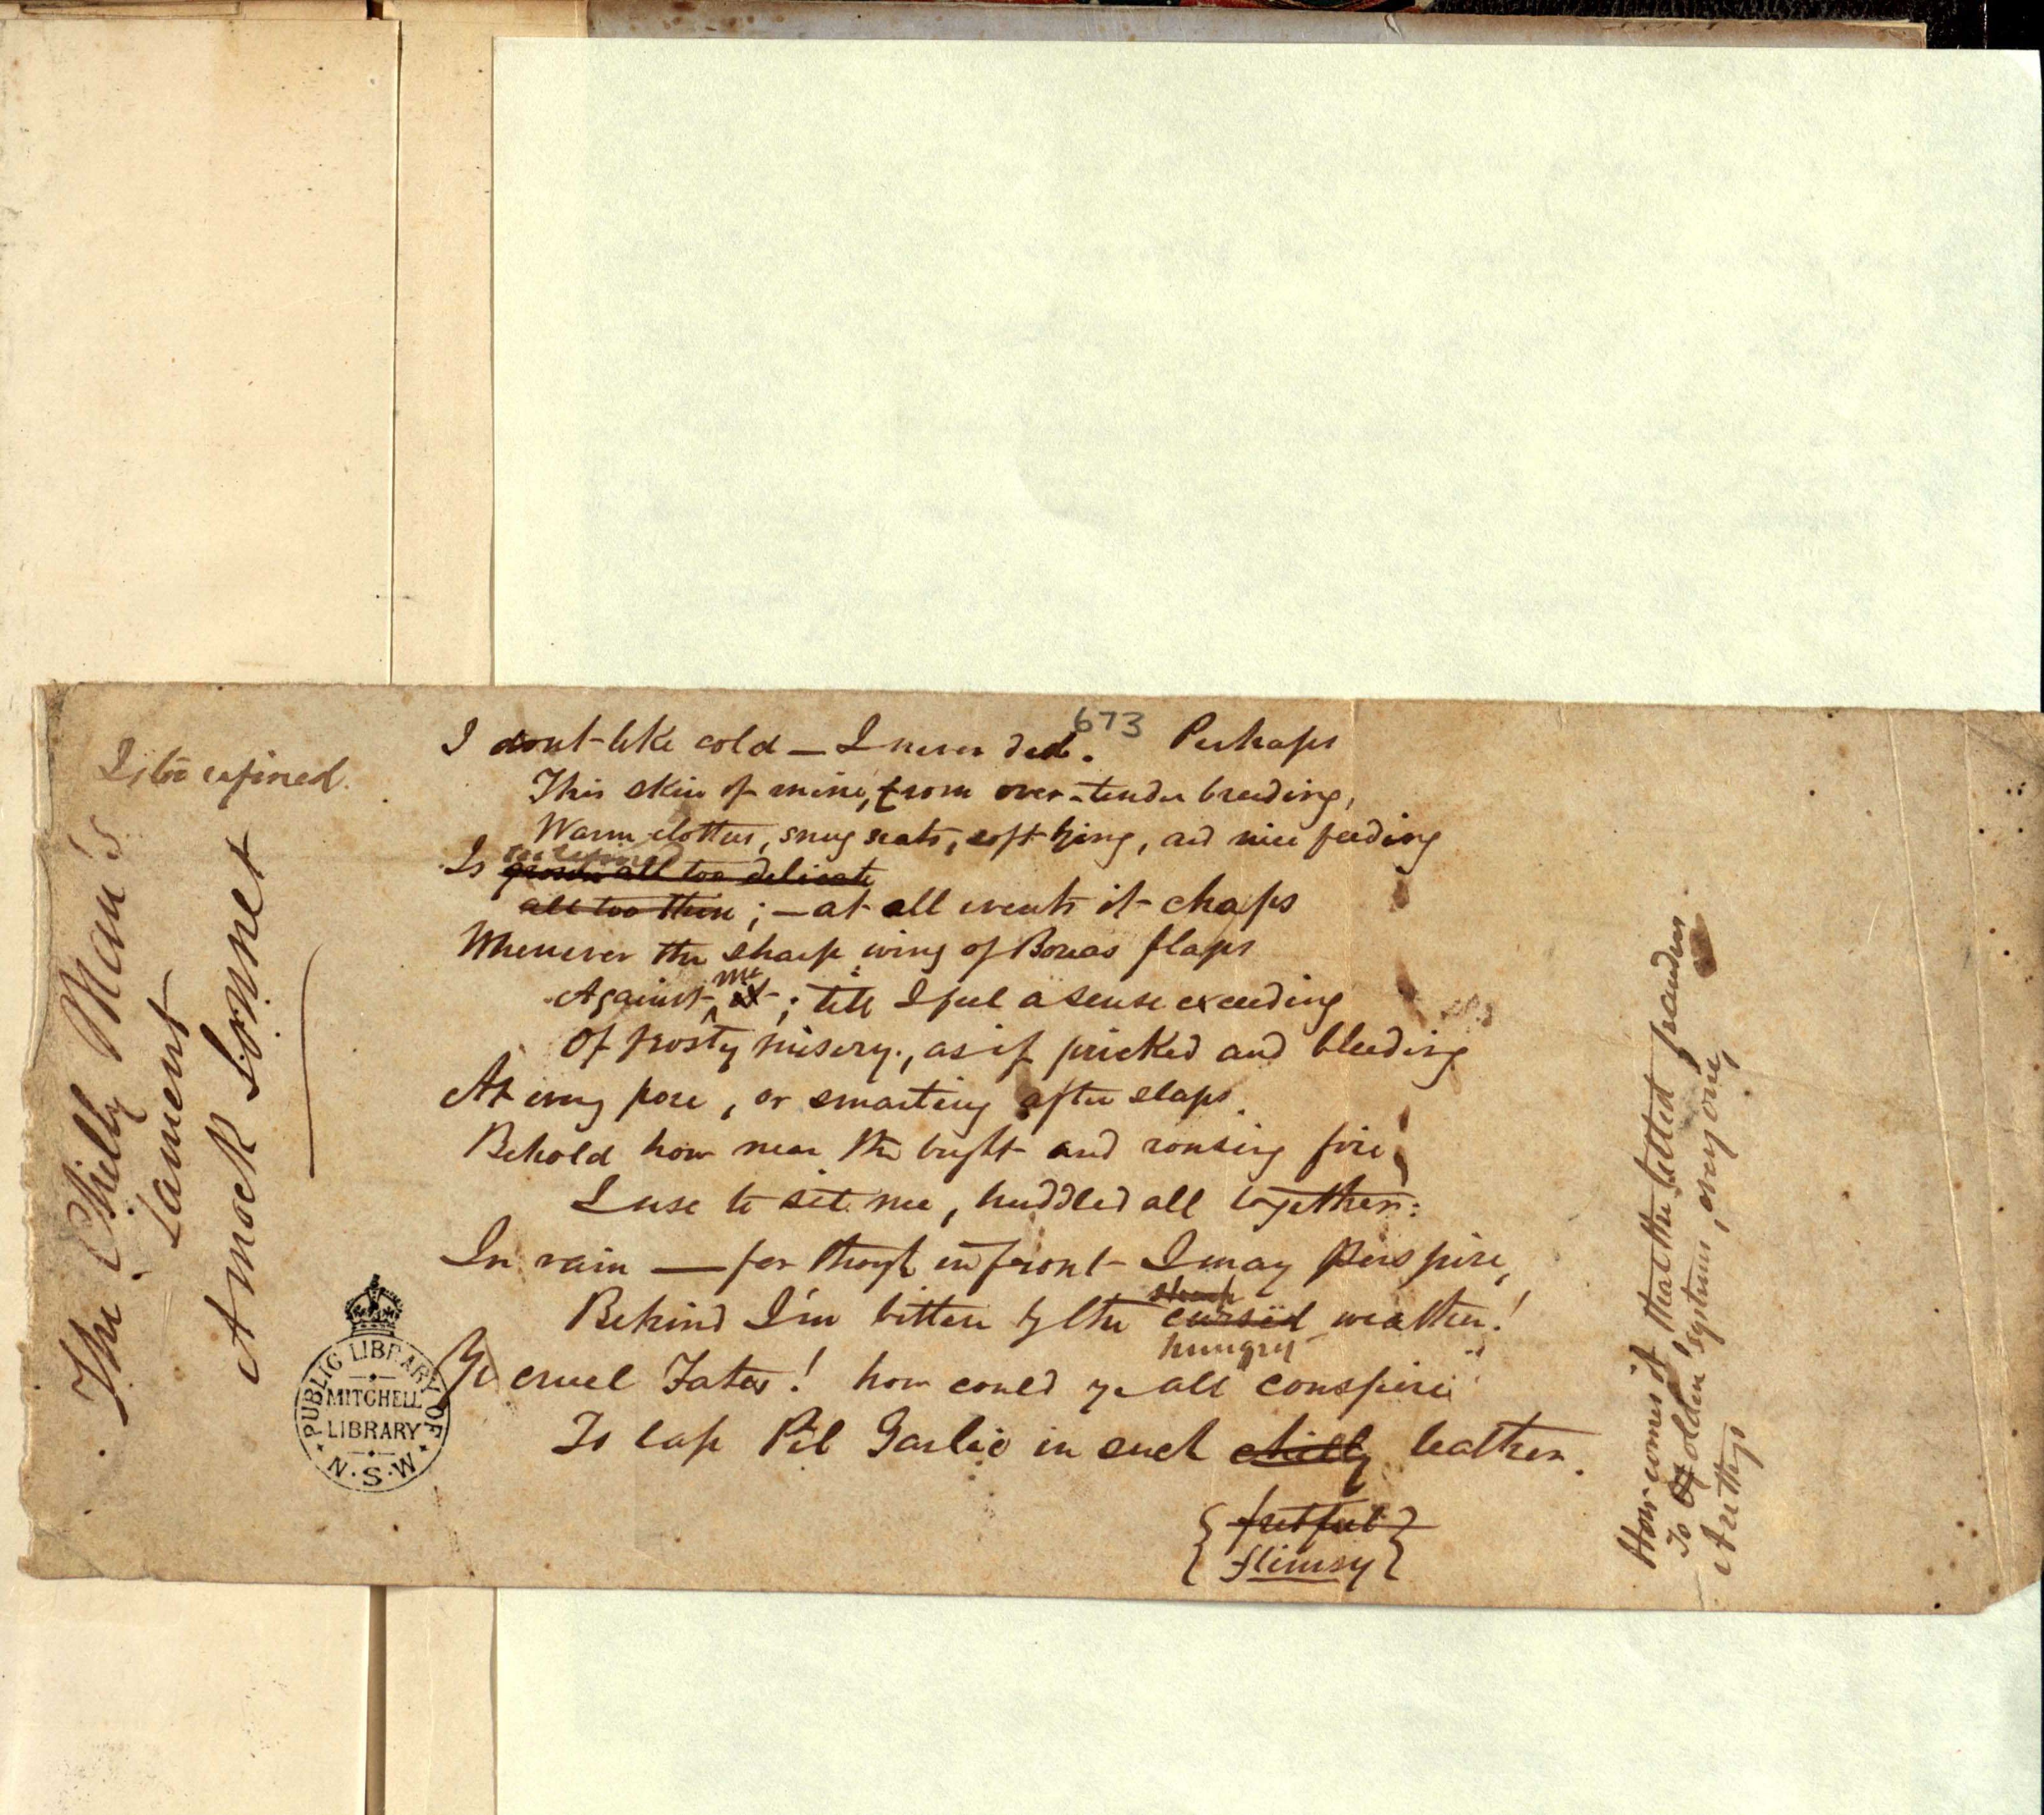 The Chilly Man's
Lament
A mock Sonnet
Is too refined.
673
I dont like cold – I never did. Perhaps
This skin of mine, from over-tender breeding,
Warm clothes, snug seats, soft lying, and nice feeding
Is grown all too delicate
all too thin ; – at all events it chaps
Whenever the sharp wing of Boreas flaps
me
Against it ; till I feel a sense exceeding
Of frosty misery, as if pricked and bleeding
At every pore, or smarting after slaps.
Behold how near the bright and rousing fire
I use to sit me, huddled all together:
In vain — for though in front I may perspire,
sharp
Behind I'm bitten by the cursed weather!
hungry
Ye cruel Fates! how could ye all conspire
To lap Pil Garlic in such chilly leather.
{ fretful }
{ flimsy }
How comes it that the lauded
To Of olden systems, every one,
PUBLIC LIBRARY OF
MITCHELL
LIBRARY
N.S.W